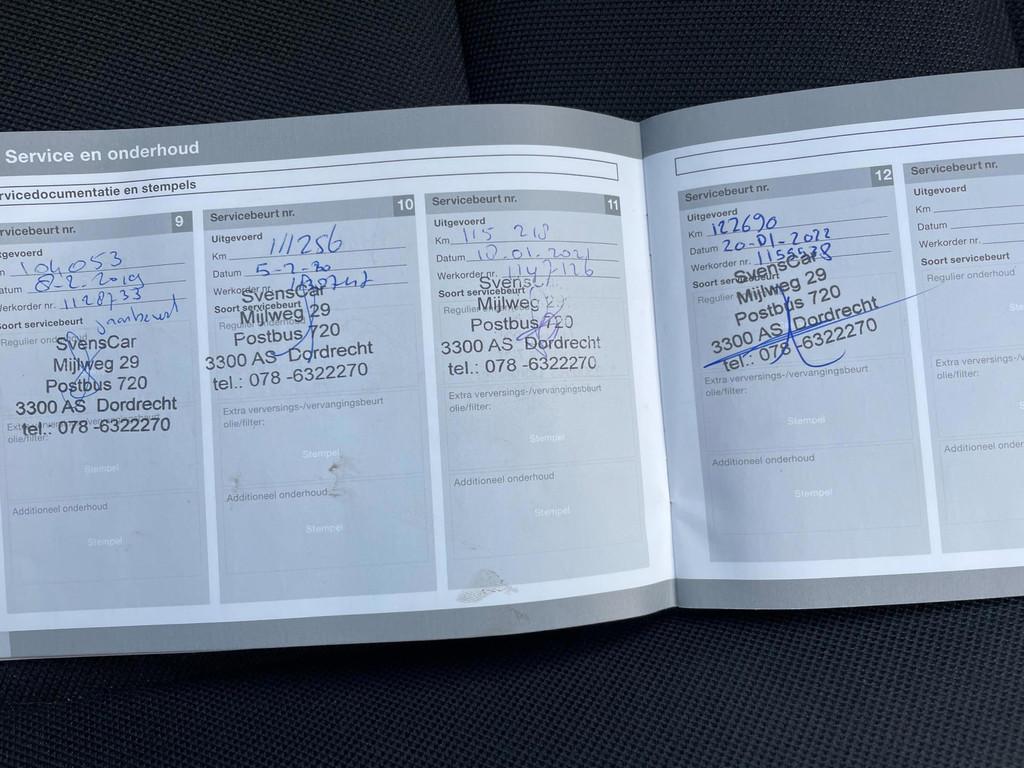 Service en onderhoud
rvicedocumentatie en stempels
rvicebeurt nr. 9
tgevoerd
m 104053
atum 8-2-2019
Werkorder nr. 1128733
Soort servicebeurt
Regulier
SvensCar
Mijlweg 29
Postbus 720
3300 AS Dordrecht
tel.: 078 -6322270
olie/filter:
Stempel
Additioneel onderhoud
Stempel
Servicebeurt nr. 10
Uitgevoerd
Km 111256
Datum
Werkorder nr.
Soort servicebeurt
SvensCar
Mijlweg 29
Postbus 720
3300 AS Dordrecht
tel.: 078 -6322270
Extra verversings-/vervangingsbeurt
olie/filter:
Stempel
Additioneel onderhoud
Stempel
Servicebeurt nr. 11
Uitgevoerd
Km 115 218
Datum 18.01.2021
Werkorder nr. 1147126
Soort servicebeurt
Mijlweg
Postbus 720
3300 AS Dordrecht
tel.: 078 -6322270
Extra verversings-/vervangingsbeurt
olie/filter:
Stempel
Additioneel onderhoud
Stempel
Servicebeurt nr. 12
Uitgevoerd
Km 122690
Datum 20-01-2022
Werkorder nr.
Soort servicebeurt
Regulier
SvensCar
Mijlweg 29
Postbus 720
3300 AS Dordrecht
tel.: 078 -6322270
Extra verversings-/vervangingsbeurt
olie/filter:
Stempel
Additioneel onderhoud
Stempel
Servicebeurt nr.
Uitgevoerd
Km
Datum
Werkorder nr.
Soort servicebeurt
Regulier onderhoud
Extra verversings-/v
olie/filter:
Additioneel onderho